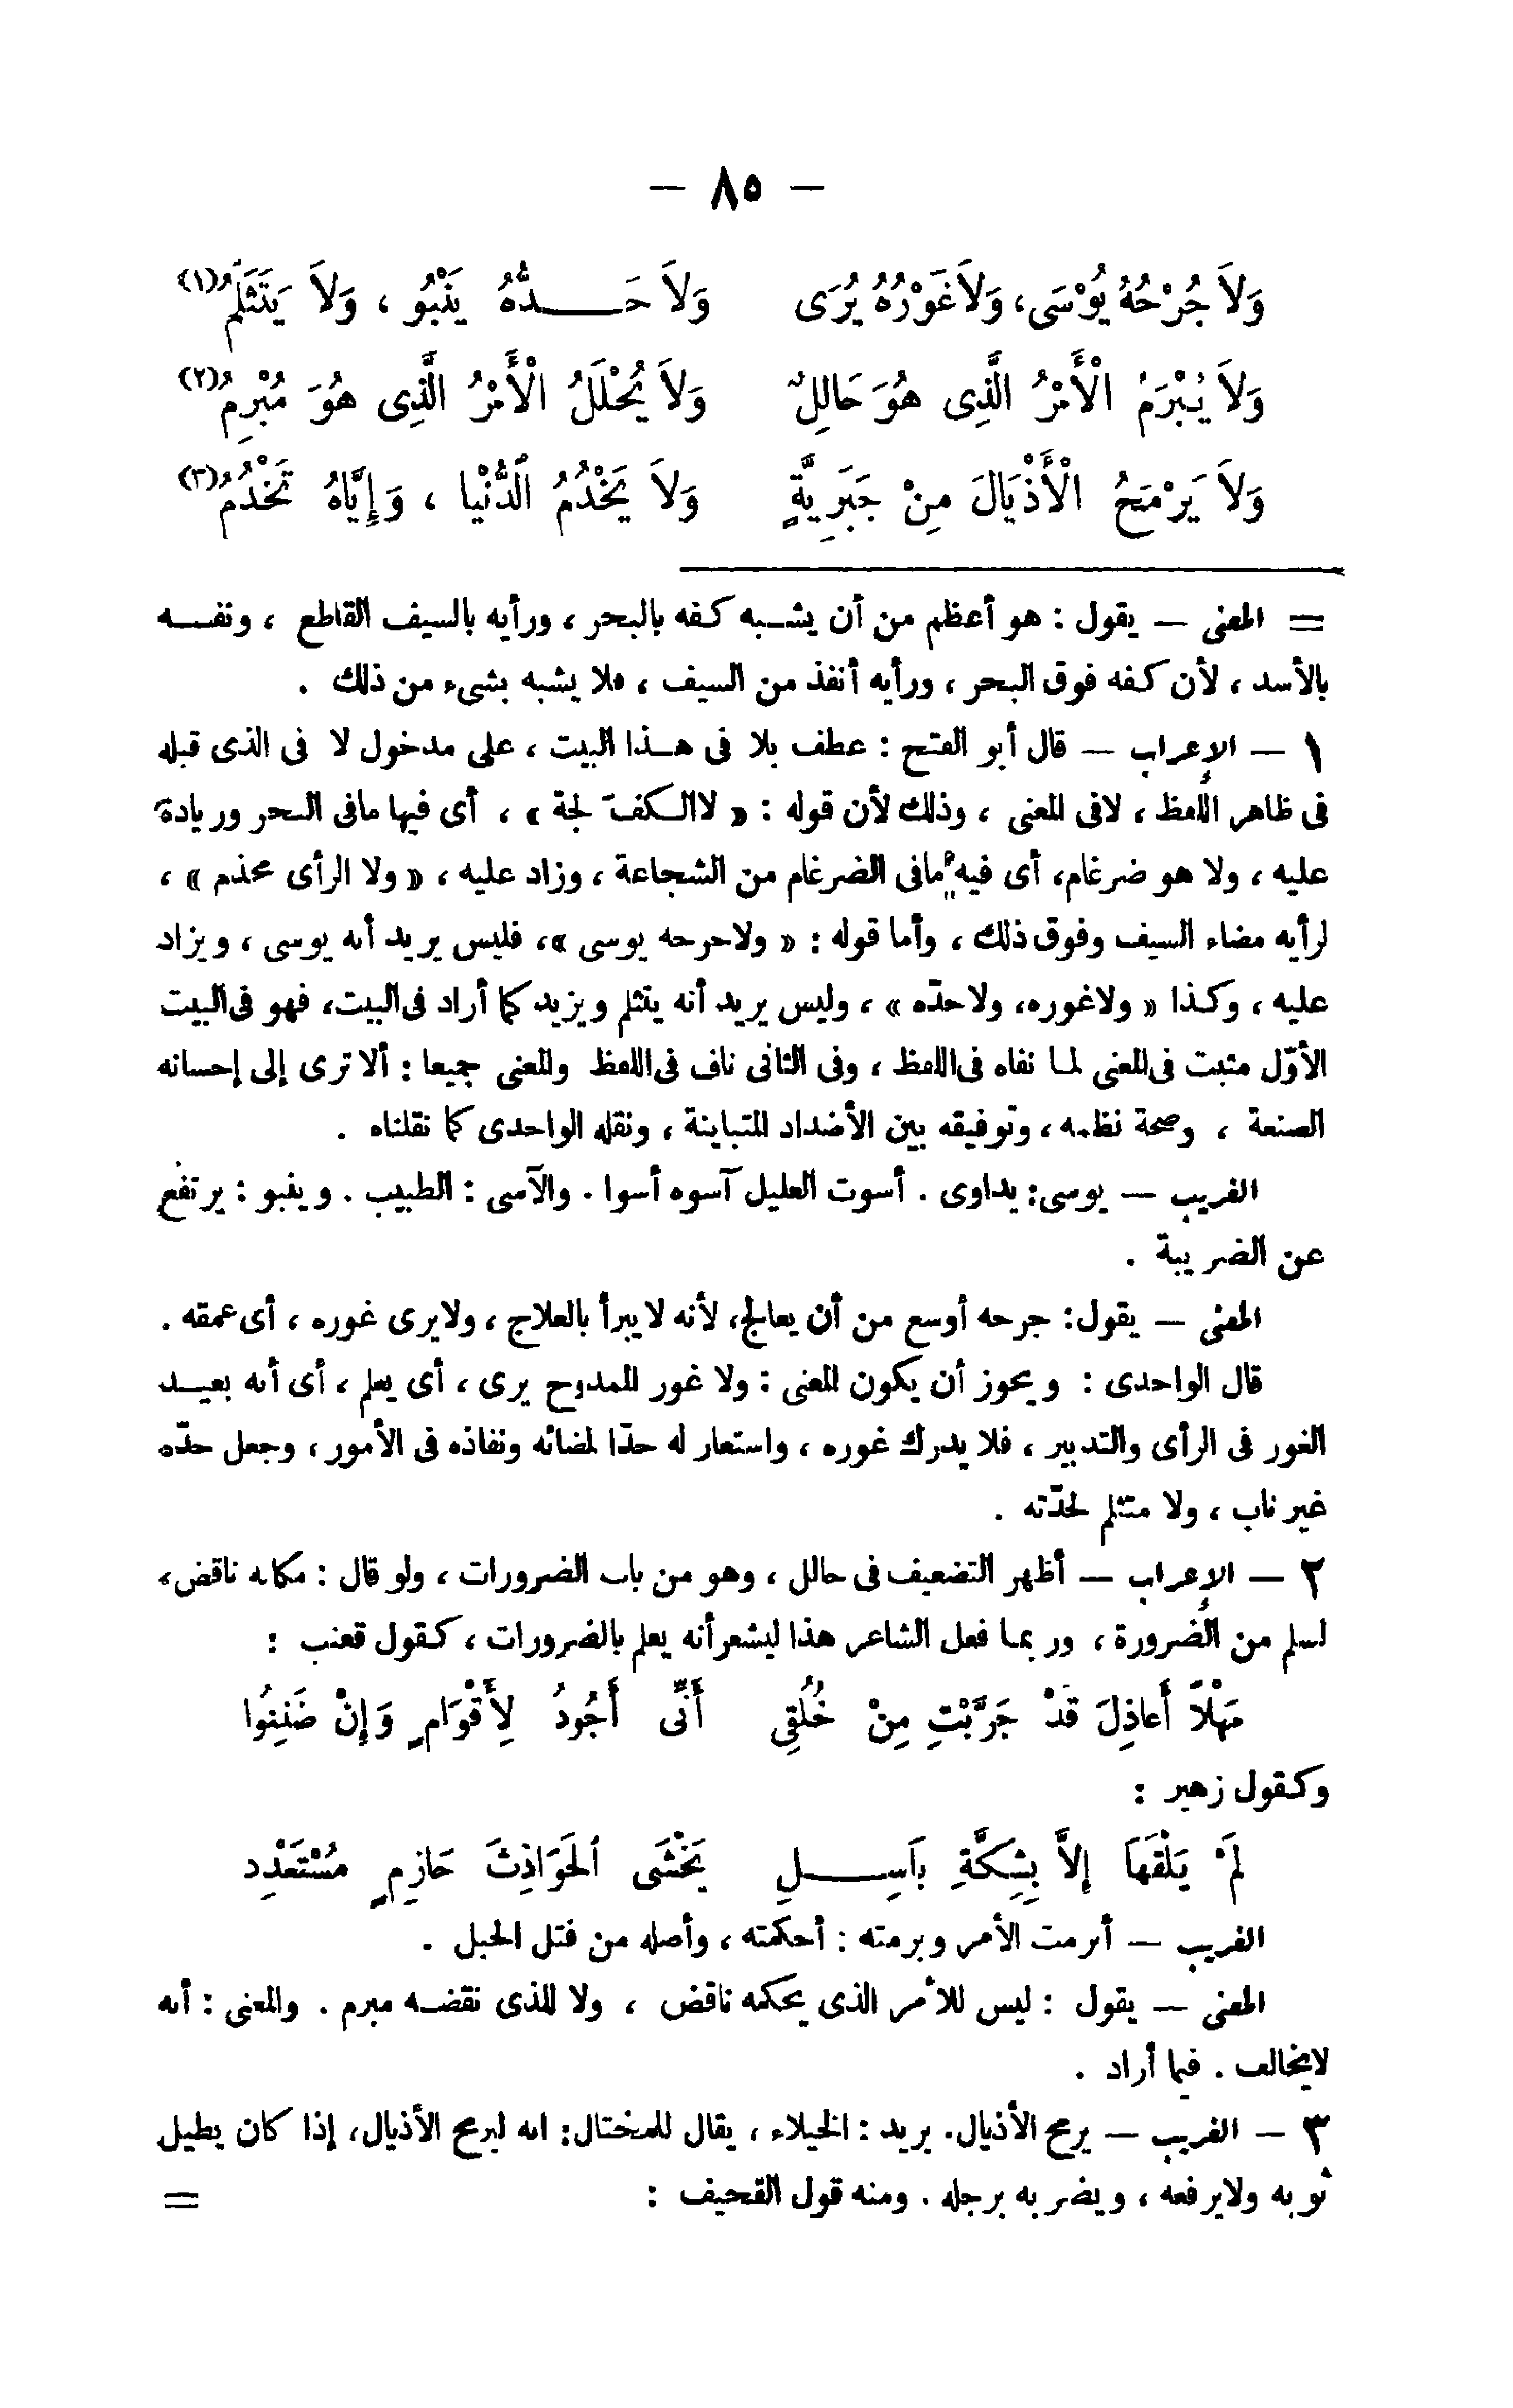 — ٨٥ —
وَلاَ جُرْحُهُ يُوْسَى، وَلاَغَوْرُهُ يُرَى وَلاَ حَـــدُّهُ يَنْبُو ، وَلاَ يَتَثَلَّمُ(١)
وَلاَ يُبْرَمُ الْأَمْرُ الَّذِى هُوَ حَالِلٌ وَلاَ يُحْلَلُ الْأَمْرُ الَّذِى هُوَ مُبْرِمُ(٢)
وَلاَ يَرْمَحُ الْأَذْيَالَ مِنْ جَبَرِيَّةٍ وَلاَ يَخْدُمُ الدُّنْيَا ، وَإِيَّاهُ تَخْدُمُ(٣)
= المعنى — يقول : هو أعظم من أن يشـبه كفه بالبحر ، ورأيه بالسيف القاطع ، ونفسـه
بالأسد ، لأن كفه فوق البحر ، ورأيه أنفذ من السيف ، فلا يشبه بشىء من ذلك .
١ — الإعراب — قال أبو الفتح : عطف بلا فى هـذا البيت ، على مدخول لا فى الذى قبله
فى ظاهر اللفظ ، لافى المعنى ، وذلك لأن قوله : « لاالكفّ لجة » ، أى فيها مافى البحر وريادة
عليه ، ولا هو ضرغام، أى فيه مافى الضرغام من الشجاعة ، وزاد عليه ، « ولا الرأى مخذم » ،
لرأيه مضاء السيف وفوق ذلك ، وأما قوله : « ولاجرحه يوسى »، فليس يريد أنه يوسى ، ويزاد
عليه ، وكذا « ولاغوره، ولاحدّه » ، وليس يريد أنه يتثلم ويزيد كما أراد فى البيت، فهو فى البيت
الأوّل مثبت فى المعنى لما نفاه فى اللفظ ، وفى الثانى ناف فى اللفظ والمعنى جميعا : ألا ترى إلى إحسانه
الصنعة ، وصحة نظمه ، وتوفيقه بين الأضداد المتباينة ، ونقله الواحدى كما نقلناه .
الغريب — يوسى: يداوى . أسوت العليل آسوه أسوا . والآسى : الطبيب . وينبو : يرتفع
عن الضريبة .
المعنى — يقول: جرحه أوسع من أن يعالج، لأنه لا يبرأ بالعلاج ، ولايرى غوره ، أى عمقه .
قال الواحدى : ويجوز أن يكون المعنى : ولا غور للمدوح يرى ، أى يعلم ، أى أنه بعيـد
الغور فى الرأى والتدبير ، فلا يدرك غوره ، واستعار له حدّا لمضائه ونفاذه فى الأمور ، وجعل حدّه
غير ناب ، ولا متثلم لحدّته .
٢ — الإعراب — أظهر التضعيف فى حالل ، وهو من باب الضرورات ، ولو قال : مكانه ناقض،
لسلم من الضرورة ، وربما فعل الشاعر هذا ليشعر أنه يعلم بالضرورات ، كقول قعنب :
مَهْلاً أَعاذِلَ قَدْ جَرَّبْتِ مِنْ خُلُقِى أَنِّى أَجُودُ لِأَقْوَامٍ وَإِنْ ضَنِنُوا
وكقول زهير :
لَمْ يَلْقَهَا إلاَّ بِشِكَّةِ بَاسِـــلٍ يَخْشَى الحَوَادِثَ حَازِمٍ مُسْتَعْدِدِ
الغريب — أبرمت الأمر وبرمته : أحكمته ، وأصله من فتل الحبل .
المعنى — يقول : ليس للأمر الذى يحكمه ناقض ، ولا للذى نقضـه مبرم . والمعنى : أنه
لايخالف . فيما أراد .
٣ — الغريب — يرمح الأذيال. يريد : الخيلاء ، يقال للمختال: انه ليرمح الأذيال، إذا كان يطيل
ثوبه ولايرفعه ، ويضربه برجله . ومنه قول القحيف : =